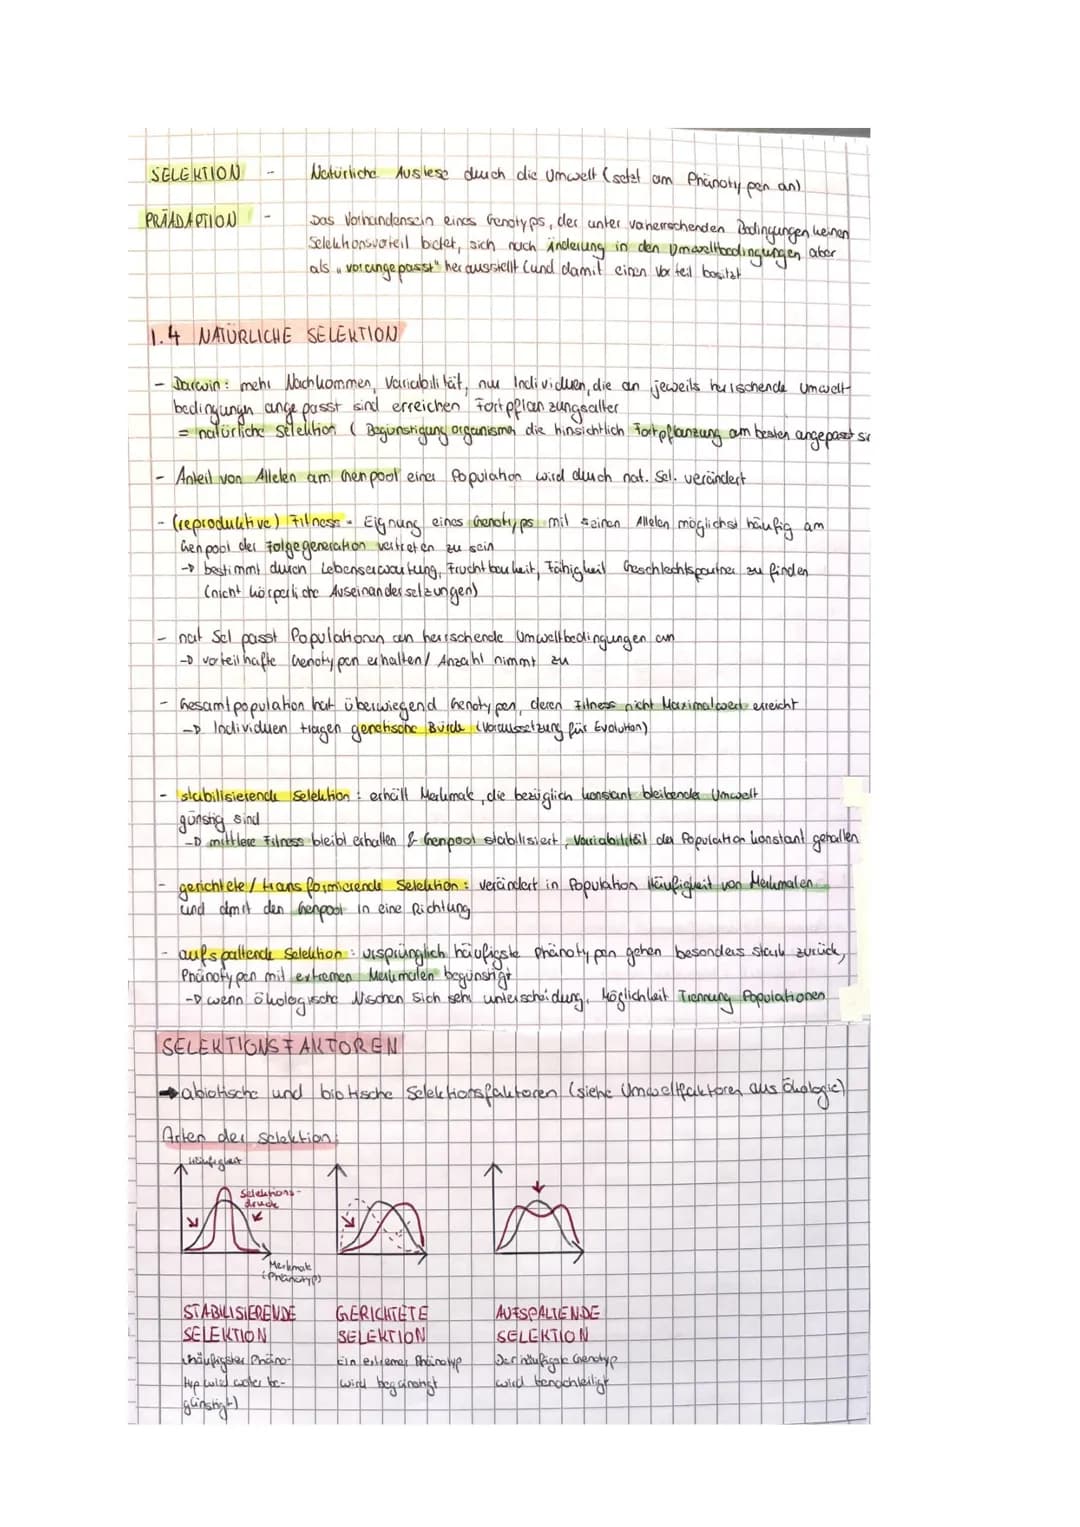 SELEKTION - Natürliche Auslese durch die Umwelt (setzt am Phänotypen an)
PRÄADAPTION - Das Vorhandensein eines Genotyps, der unter vorherrschenden Bedingungen keinen
Selektionsvorteil bietet, sich nach Änderung in den Umweltbedingungen aber
als "vorangepasst" herausstellt (und damit einen Vorteil besitzt
1.4 NATÜRLICHE SELEKTION
- Darwin: mehr Nachkommen, Variabilität, nur Individuen, die an jeweils herrschende Umwelt-
bedingungn angepasst sind erreichen Fortpflanzungsalter
= natürliche Selektion (Begünstigung Organismen die hinsichtlich Fortpflanzung am besten angepasst si
- Anteil von Allelen am Genpool einer Population wird durch nat. Sel. verändert
- (reproduktive) Fitness = Eignung eines Genotyps mit seinen Allelen möglichst häufig am
Genpool der Folgegeneration vertreten zu sein
→ bestimmt durch Lebenserwartung, Fruchtbarkeit, Fähigkeit Geschlechtspartner zu finden
(nicht körperliche Auseinandersetzungen)
- nat Sel passt Populationen an herrschende Umweltbedingungen an
→ vorteilhafte Genotypen erhalten/ Anzahl nimmt zu
- Gesamtpopulation hat überwiegend Genotypen, deren Fitness nicht Maximalwert erreicht
→ Individuen tragen genetische Bürde (Voraussetzung für Evolution)
- stabilisierende Selektion: erhält Merkmale, die bezüglich konstant bleibender Umwelt
günstig sind
→ mittlere Fitness bleibt erhalten & Genpool stabilisiert, Variabilität der Population konstant gehalten
- gerichtete/transformierende Selektion: verändert in Population Häufigkeit von Merkmalen
und dmit den Genpool in eine Richtung
- aufspaltende Selektion: ursprünglich häufigste Phänotypen gehen besonders stark zurück,
Phänotypen mit extremen Merkmalen begünstigt
→ wenn ökologische Nischen sich sehr unterscheidung, Möglichkeit Trennung Populationen
SELEKTIONSFAKTOREN
→ abiotische und biotische Selektionsfaktoren (siehe Umweltfaktoren aus Ökologie)
Arten der Selektion:
Häufigkeit
Selektions-
druck
Merkmale
(Phänotyp)
STABILISIERENDE
SELEKTION
(häufigster Phäno-
typ wird weiter be-
günstigt)
GERICHTETE
SELEKTION
Ein extremer Phänotyp
wird begünstigt
AUFSPALTENDE
SELEKTION
Der häufigste Genotyp
wird benachteiligt